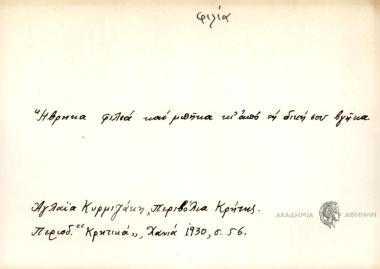 φιλία
"Ηβρηκα φιλιά καὶ μπῆκα κι' ἀπὸ τὴ δική σου βγῆκα
Ἀγλαΐα Κυρμιζάκη, Περιβόλια Κρήτης.
Περιοδ. "Κρητικά„, Χανιά 1930, σ. 56.
ΑΚΑΔΗΜΙΑ ΑΘΗΝΩΝ